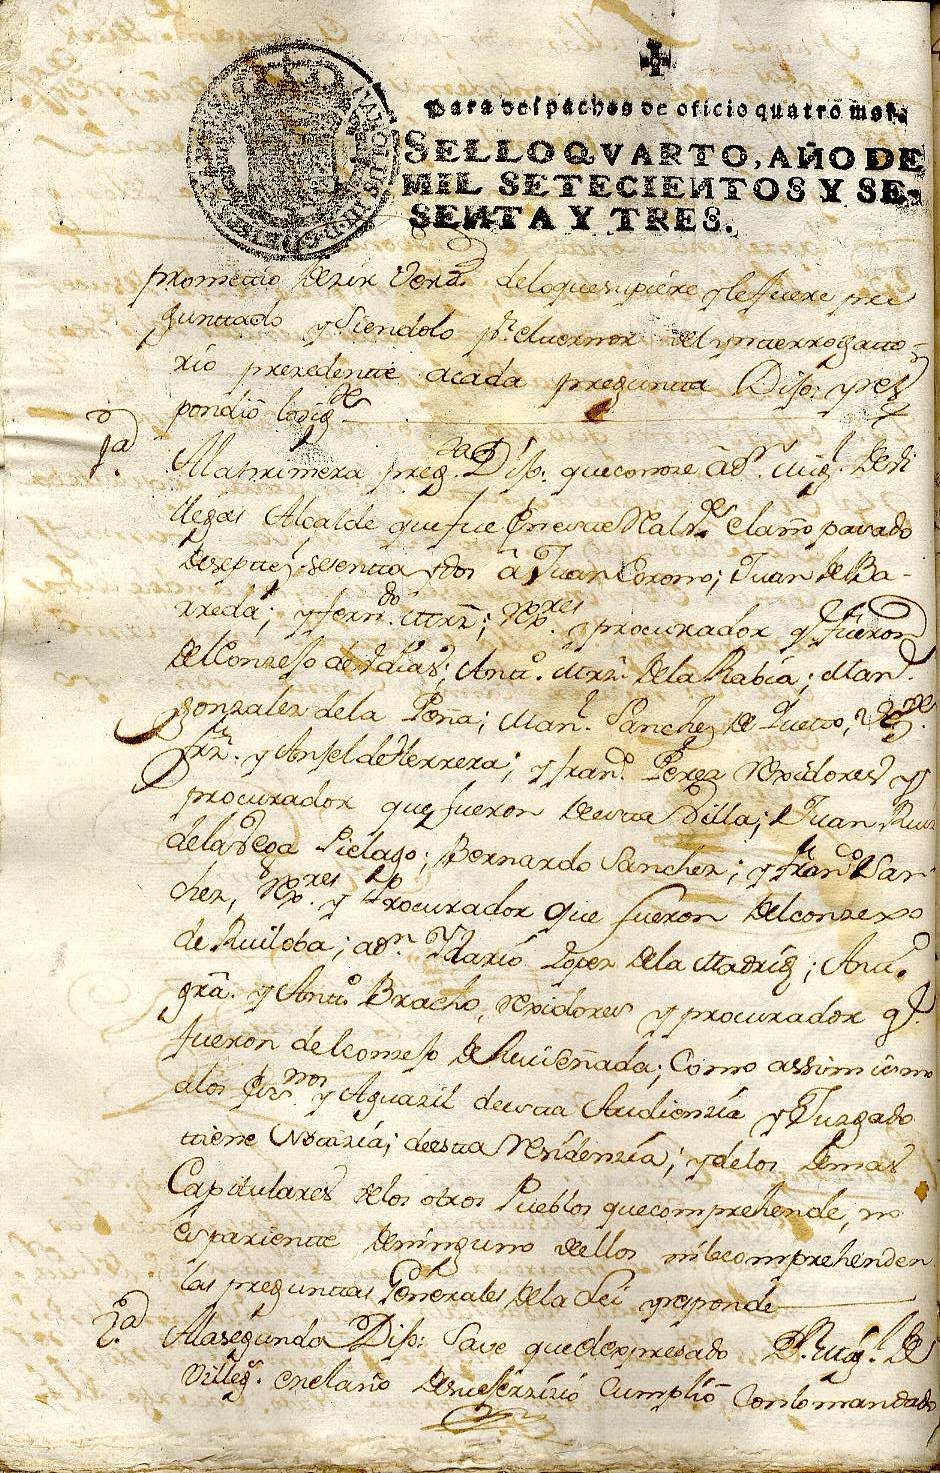 CAROLUS III D G
Para despachos de oficio quatro mrs.
SELLO QVARTO, AÑO DE
MIL SETECIENTOS Y SE-
SENTA Y TRES.
prometio dezir verd. delo que supiere y le fuere pre
guntado y siendolo pr. el thenor del ynterrogatto-
rio prezedentte acada pregunta Dijo, y res
pondio lo sigte
1a
Ala primera preg.ta Dijo: que conoze â dn. Migl. de Vi
llegas Alcalde que fue en este Real Valle el año pasado
de septe. sesenta y dos â Juan Corono; Juan de Ba-
rreda; y fern.do Mrnz; Rxres. y procurador q. fueron
del Conzejo de Vdias; Antto. Mrnz. de la Rabia; Man.
gonzalez de la Peña; Manl. Sanchez de Puetto,
frz. y Anjel de Herrera; y Franco. Perez rexidores y
procurador que fueron de esta Villa; Juan Ruiz
de la Vega Pielago; Bernardo Sanchez; y Franco San
chez, Rxres. y Procurador que fueron del conzexo
de Ruiloba; a dn. Ylario Lopez de la Madriz; Antto.
gra. y Antto. Bracho, rexidores y procurador q.
fueron del consejo de Ruiseñada; Como assimismo
a los Essnos. y Aguazil de esta Audienzia y Juzgado
de esta Residenzia; y de los demas
Capitulares de los otros Pueblos que comprehende, no
es parientte de ninguno de ellos ni le comprehenden
las preguntas Generales de la Lei y responde
2a
Ala segunda Dijo: Save que el expresado Dn. Migl. de
Villegs. en el año de su serzizio cumplio con lo mandado